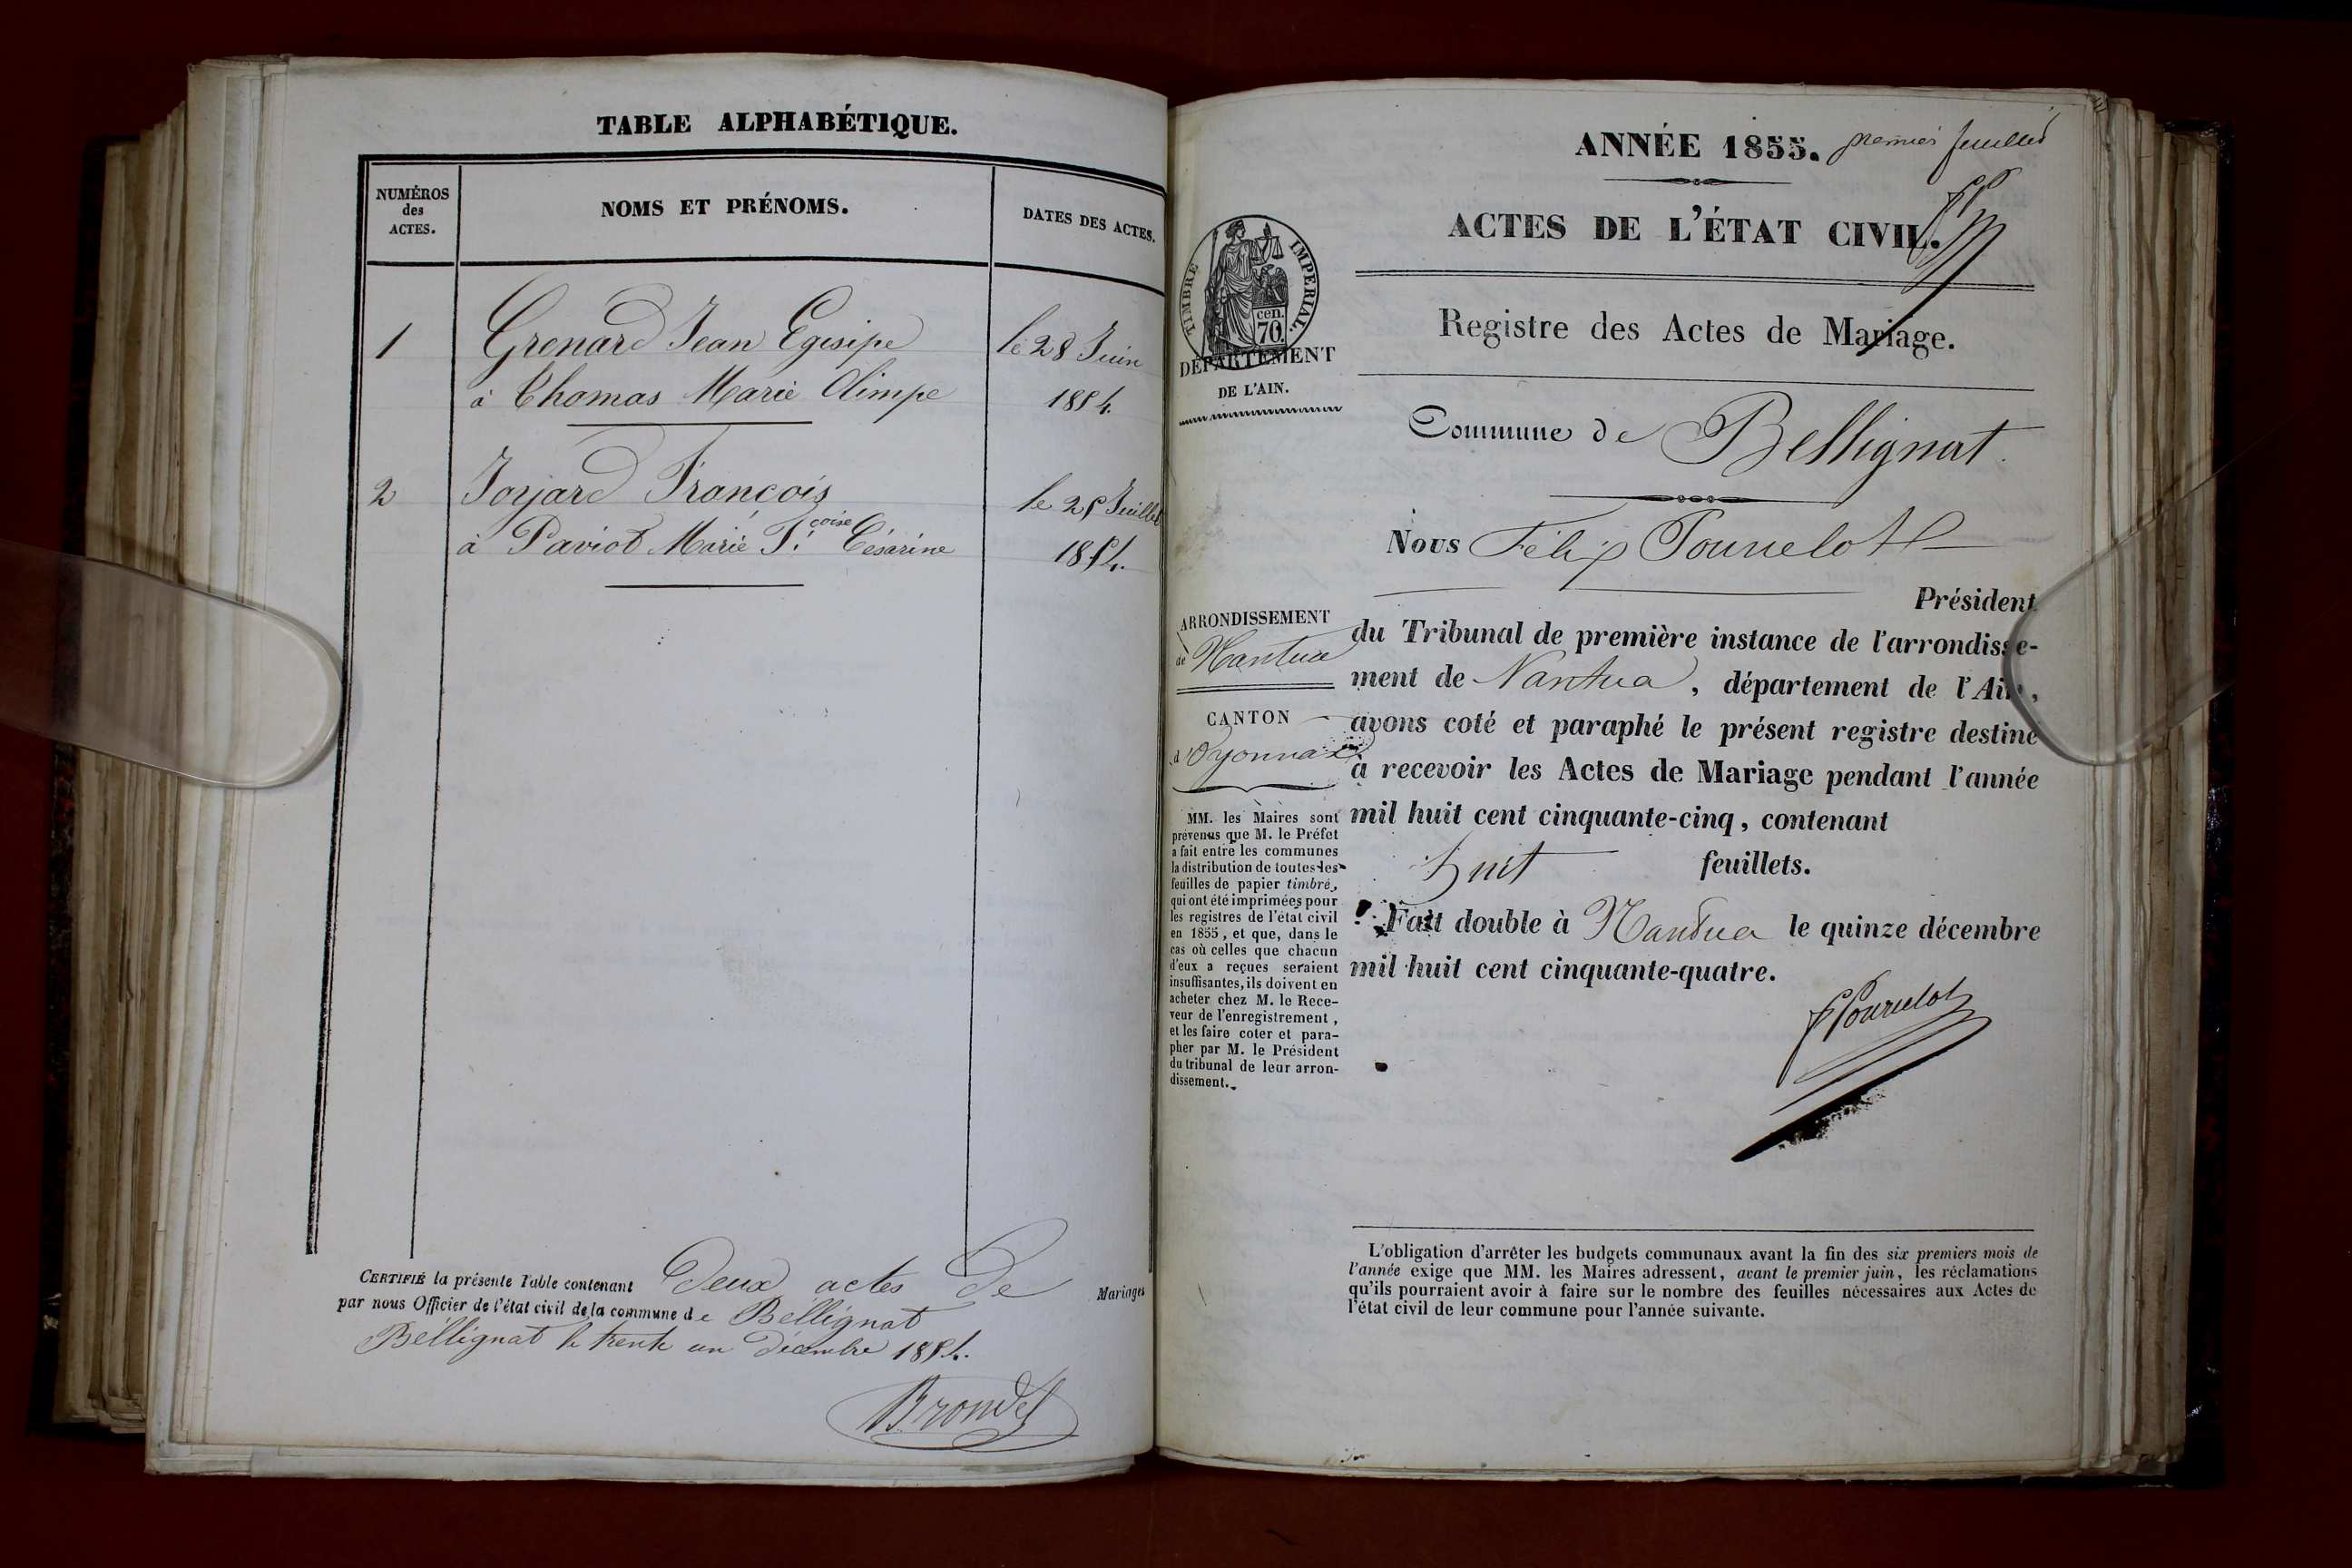 TABLE ALPHABÉTIQUE.
NUMÉROS
des
ACTES.
NOMS ET PRÉNOMS.
DATES DES ACTES.
1 Grenard Jean Egesipe le 28 Juin
à Thomas Marie Olimpe 1854.
2 Joyard François le 25 Juillet
à Paviot Marie F.çoise Césarine 1854.
CERTIFIÉ la présente Table contenant Deux actes De Mariages
par nous Officier de l'état civil de la commune de Bellignat
Bellignat le trente un décembre 1854.
Brondel
ANNÉE 1855. premier feuillet
ACTES DE L'ÉTAT CIVIL.
TIMBRE IMPERIAL.
cen.
70.
DÉPARTEMENT
DE L'AIN.
Registre des Actes de Mariage.
Commune de Bellignat.
Nous Félix Pourcelot
Président
ARRONDISSEMENT
de Nantua
CANTON
d'Oyonnax
MM. les Maires sont
prévenus que M. le Préfet
a fait entre les communes
la distribution de toutes les
feuilles de papier timbré,
qui ont été imprimées pour
les registres de l'état civil
en 1855, et que, dans le
cas où celles que chacun
d'eux a reçues seraient
insuffisantes, ils doivent en
acheter chez M. le Rece-
veur de l'enregistrement,
et les faire coter et para-
pher par M. le Président
du tribunal de leur arron-
dissement.
du Tribunal de première instance de l'arrondisse-
ment de Nantua, département de l'Ain,
avons coté et paraphé le présent registre destiné
à recevoir les Actes de Mariage pendant l'année
mil huit cent cinquante-cinq, contenant
huit feuillets.
Fait double à Nantua le quinze décembre
mil huit cent cinquante-quatre.
F Pourcelot
L'obligation d'arrêter les budgets communaux avant la fin des six premiers mois de
l'année exige que MM. les Maires adressent, avant le premier juin, les réclamations
qu'ils pourraient avoir à faire sur le nombre des feuilles nécessaires aux Actes de
l'état civil de leur commune pour l'année suivante.